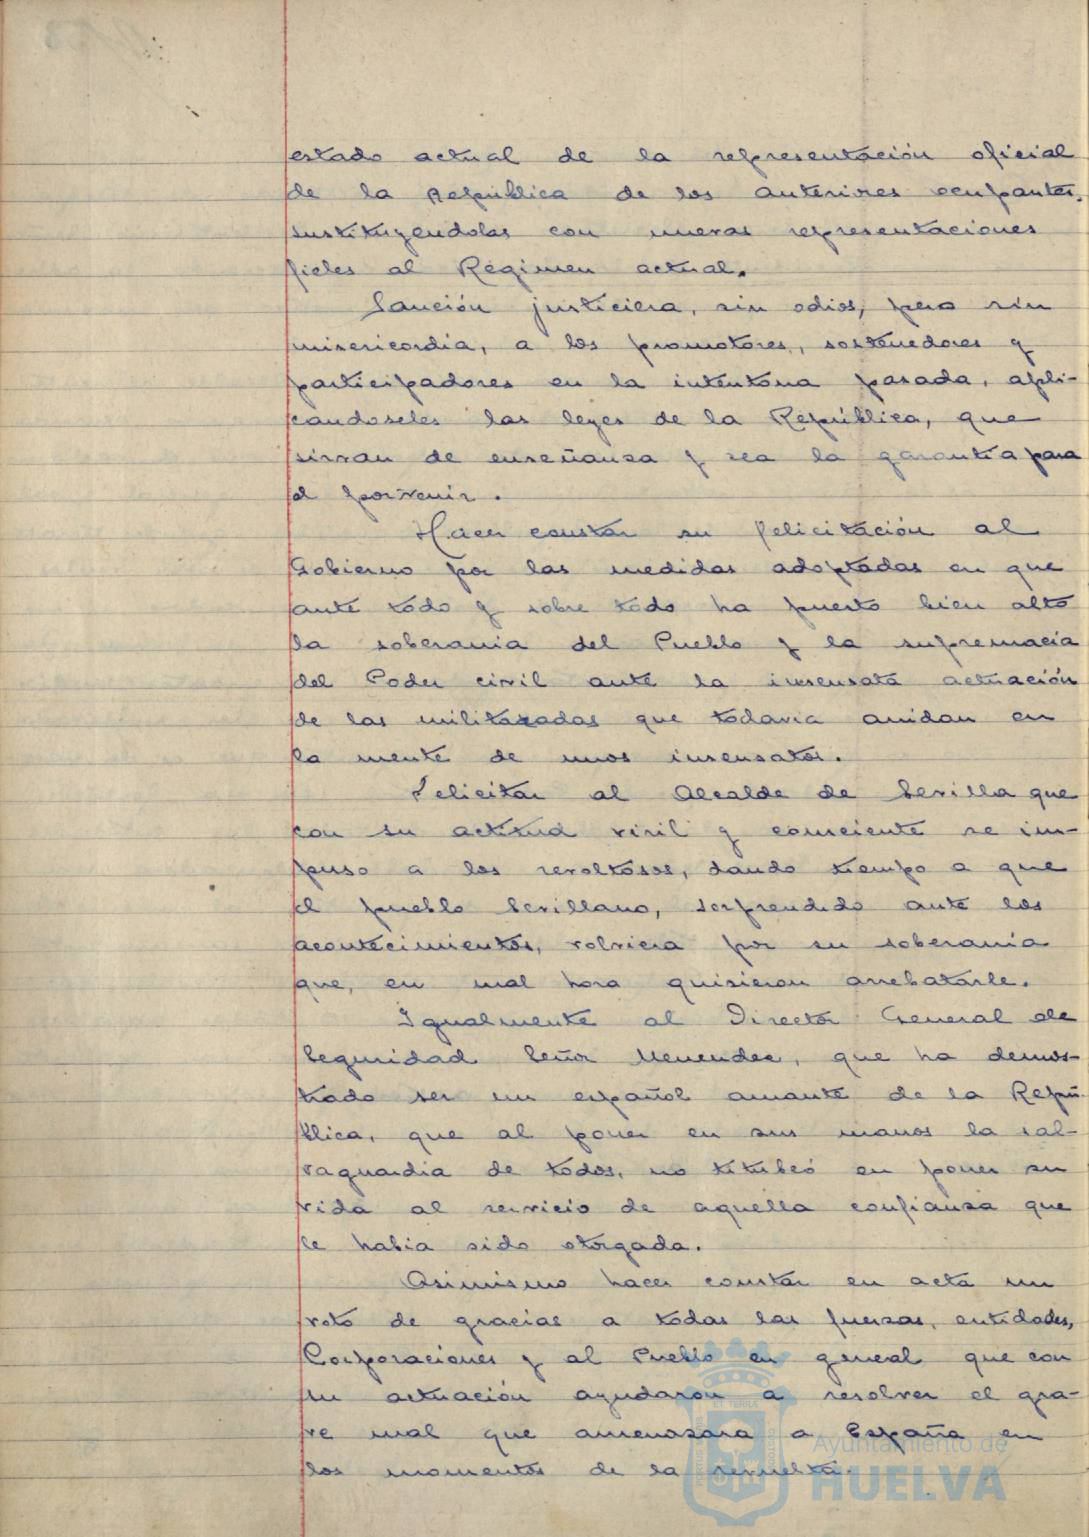 estado actual de la representación oficial
de la República de los anteriores ocupantes,
sustituyendolas con nuevas representaciones
fieles al Régimen actual.
Sanción justiciera, sin odios, pero sin
misericordia, a los promotores, sostenedores y
participadores en la intentona pasada, apli-
candoseles las leyes de la República, que
sirvan de enseñansa y sea la garantía para
el porvenir.
Hacer constar su felicitación al
Gobierno por las medidas adoptadas en que
ante todo y sobre todo ha puesto bien alto
la soberania del Pueblo y la supremacia
del Poder civil ante la insensata actuación
de las militaradas que todavia anidan en
la mente de unos insensatos.
Felicitar al Alcalde de Sevilla que
con su actitud viril y consciente se im-
puso a los revoltosos, dando tiempo a que
el pueblo Sevillano, sorprendido ante los
acontecimientos, volviera por su soberania
que, en mal hora quisieron arrebatarle.
Igualmente al Director General de
Seguridad Señor Menendez, que ha demos-
trado ser un español amante de la Repú-
blica, que al poner en sus manos la sal-
vaguardia de todos, no titubeó en poner su
vida al servicio de aquella confiansa que
le habia sido otorgada.
Asimismo hacer constar en acta un
voto de gracias a todas las fuersas, entidades,
Corporaciones y al Pueblo en general que con
su actuación ayudaron a resolver el gra-
ve mal que amenasara a España en
los momentos de la revuelta.
Ayuntamiento de
HUELVA